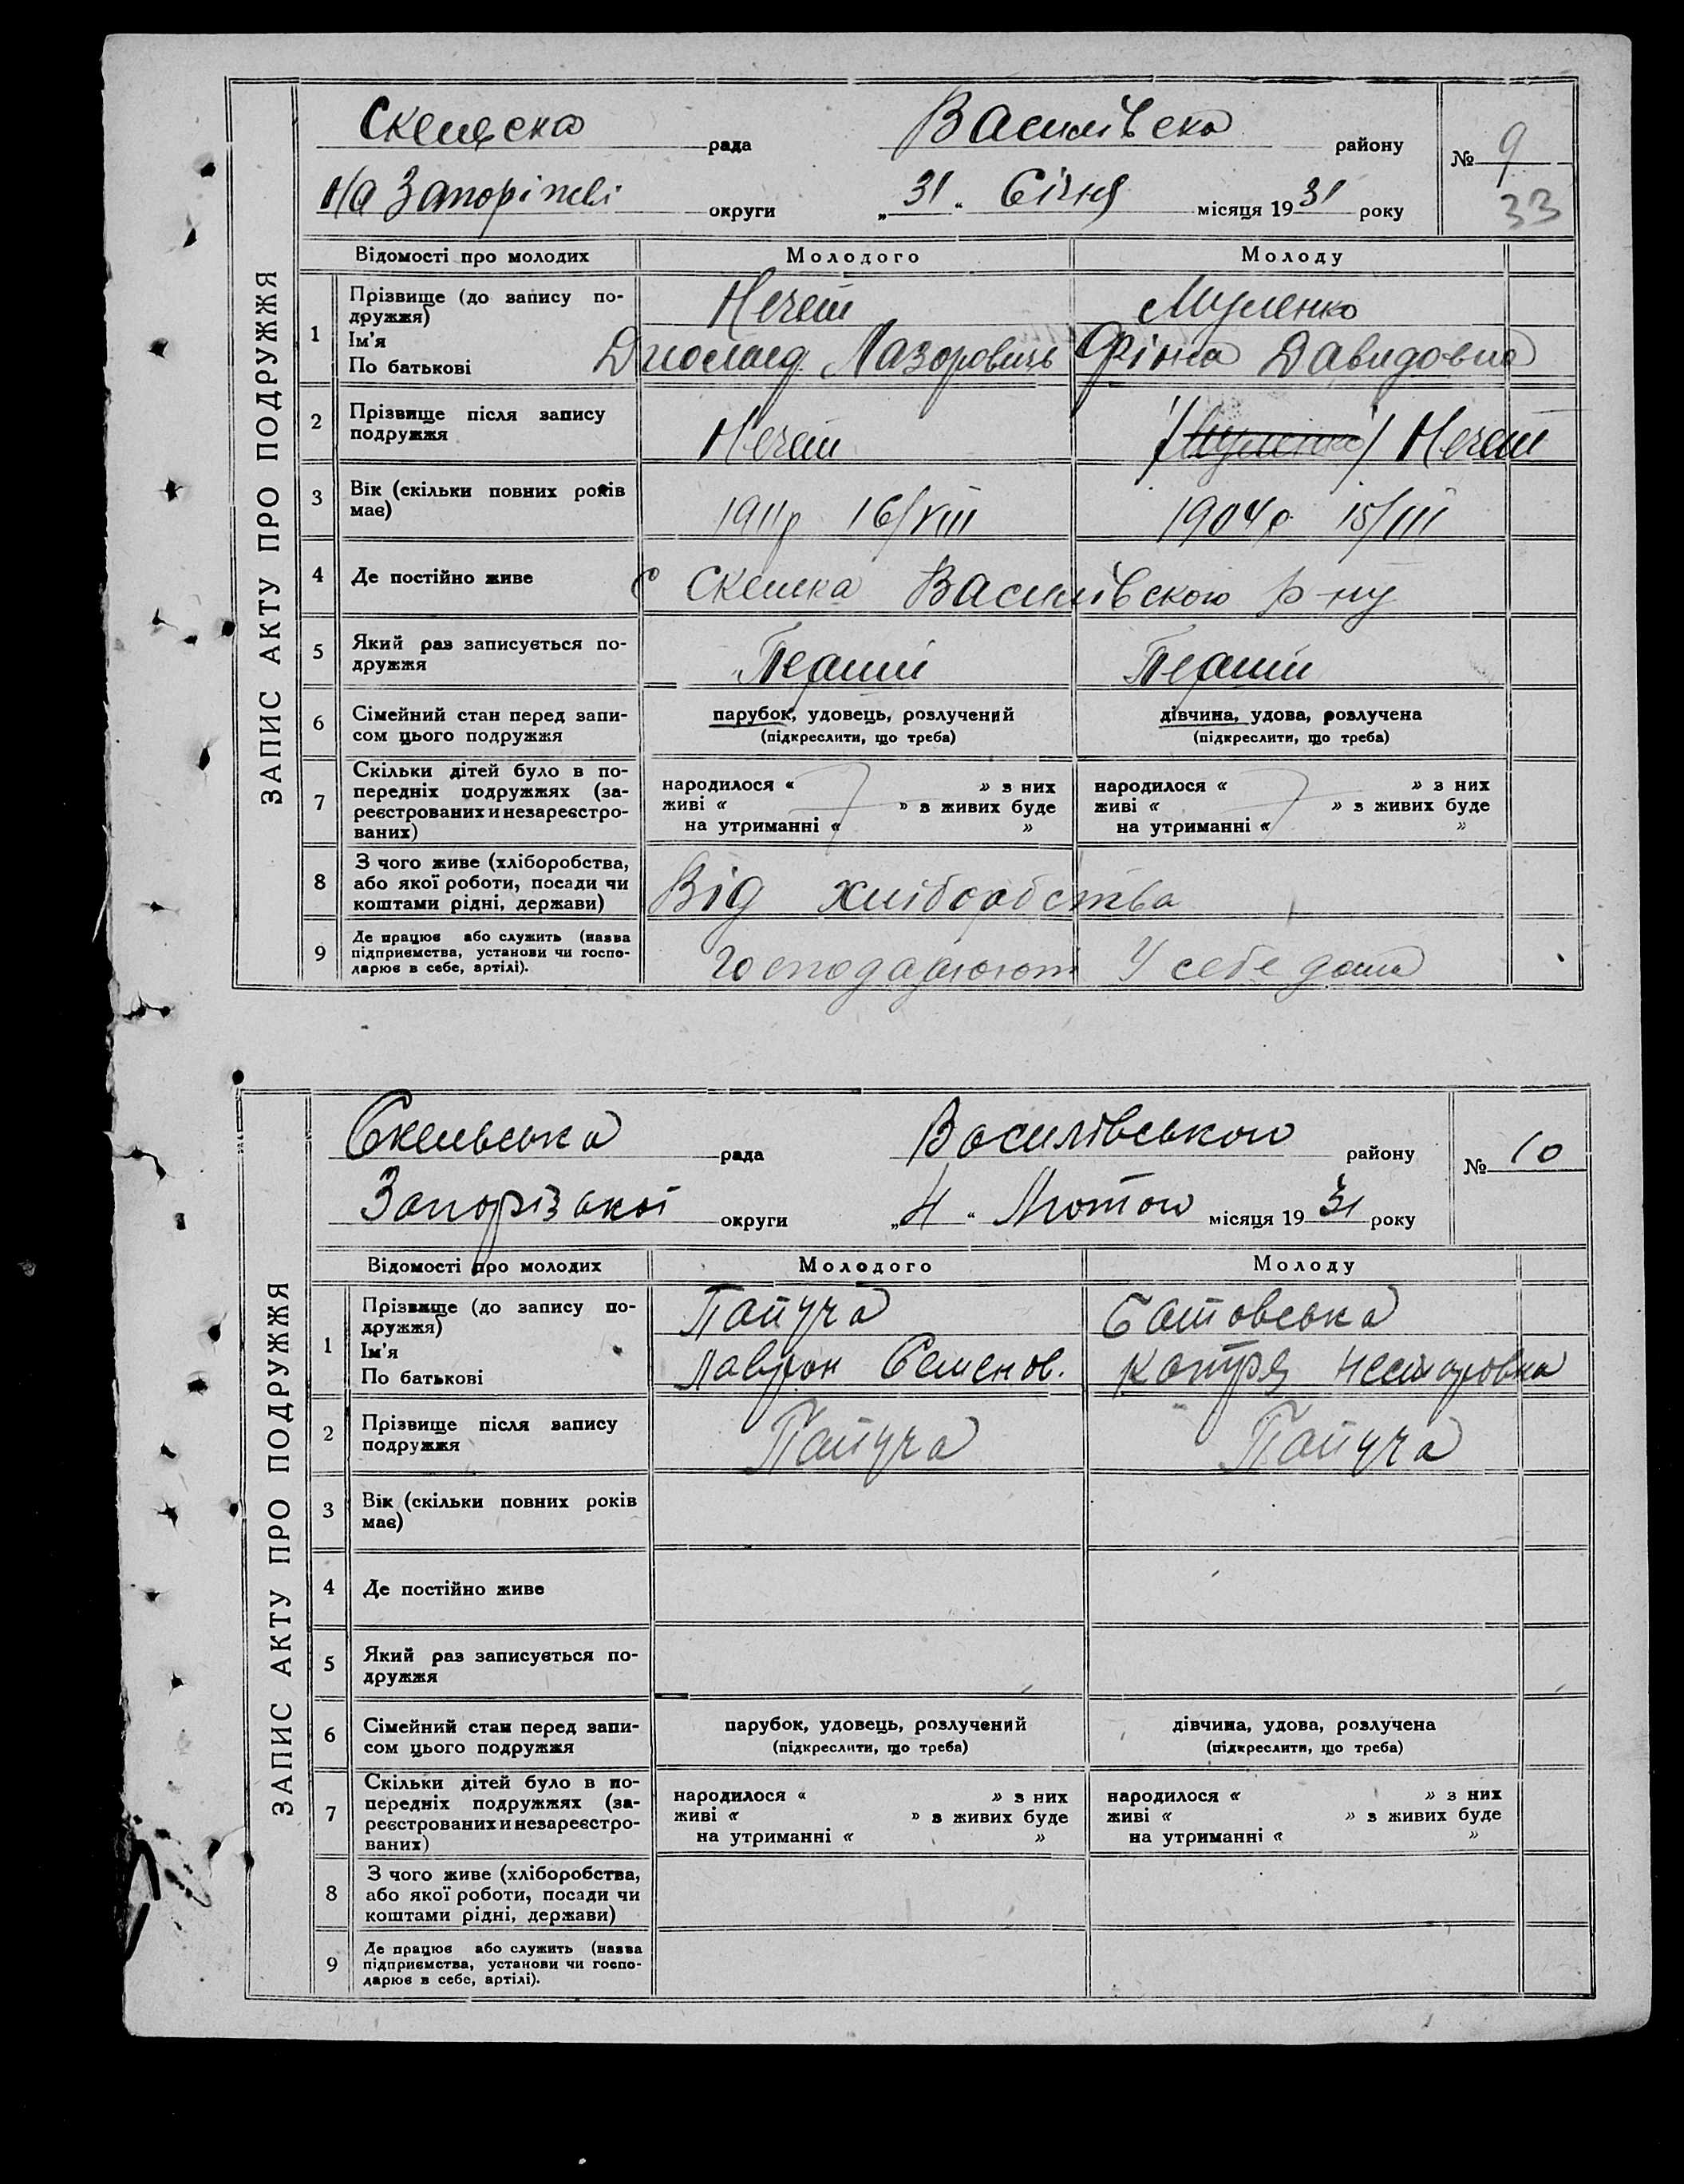 ЗАПИС АКТУ ПРО ПОДРУЖЖЯ
Скельска рада Василівска району № 9
На Запоріжжі округи „31“ Січня місяця 1931 року 33
Відомості про молодих Молодого Молоду
1 Прізвище (до запису по-
дружжя) Нечет Муленко
Ім'я
По батькові Лазоровичь Фіона Давидовна
2 Прізвище після запису
подружжя Нечет Нечет
3 Вік (скільки повних років
має) 1911р 16/VIII 1904р 15/III
4 Де постійно живе с Скелька Василівского р-ну
5 Який раз записується по-
дружжя Перший Перший
6 Сімейний стан перед запи-
сом цього подружжя
парубок, удовець, розлучений
(підкреслити, що треба)
дівчина, удова, розлучена
(підкреслити, що треба)
7 Скільки дітей було в по-
передніх подружжях (за-
реєстрованих и незареєстро-
ваних)
народилося « » з них
живі « » з живих буде
на утриманні « »
народилося « » з них
живі « » з живих буде
на утриманні « »
8 З чого живе (хліборобства,
або якої роботи, посади чи
коштами рідні, держави) Від хліборобства
9 Де працює або служить (назва
підприємства, установи чи госпо-
дарює в себе, артілі). господарюють У себе дома
ЗАПИС АКТУ ПРО ПОДРУЖЖЯ
Скельська рада Василівського району № 10
Запорізької округи „4“ Лютого місяця 1931 року
Відомості про молодих Молодого Молоду
1 Прізвище (до запису по-
дружжя) Папуча Батовська
Ім'я
По батькові Лаврон Семенов. Катря Несторовна
2 Прізвище після запису
подружжя Папуча Папуча
3 Вік (скільки повних років
має)
4 Де постійно живе
5 Який раз записується по-
дружжя
6 Сімейний стан перед запи-
сом цього подружжя
парубок, удовець, розлучений
(підкреслити, що треба)
дівчина, удова, розлучена
(підкреслити, що треба)
7 Скільки дітей було в по-
передніх подружжях (за-
реєстрованих и незареєстро-
ваних)
народилося « » з них
живі « » з живих буде
на утриманні « »
народилося « » з них
живі « » з живих буде
на утриманні « »
8 З чого живе (хліборобства,
або якої роботи, посади чи
коштами рідні, держави)
9 Де працює або служить (назва
підприємства, установи чи госпо-
дарює в себе, артілі).